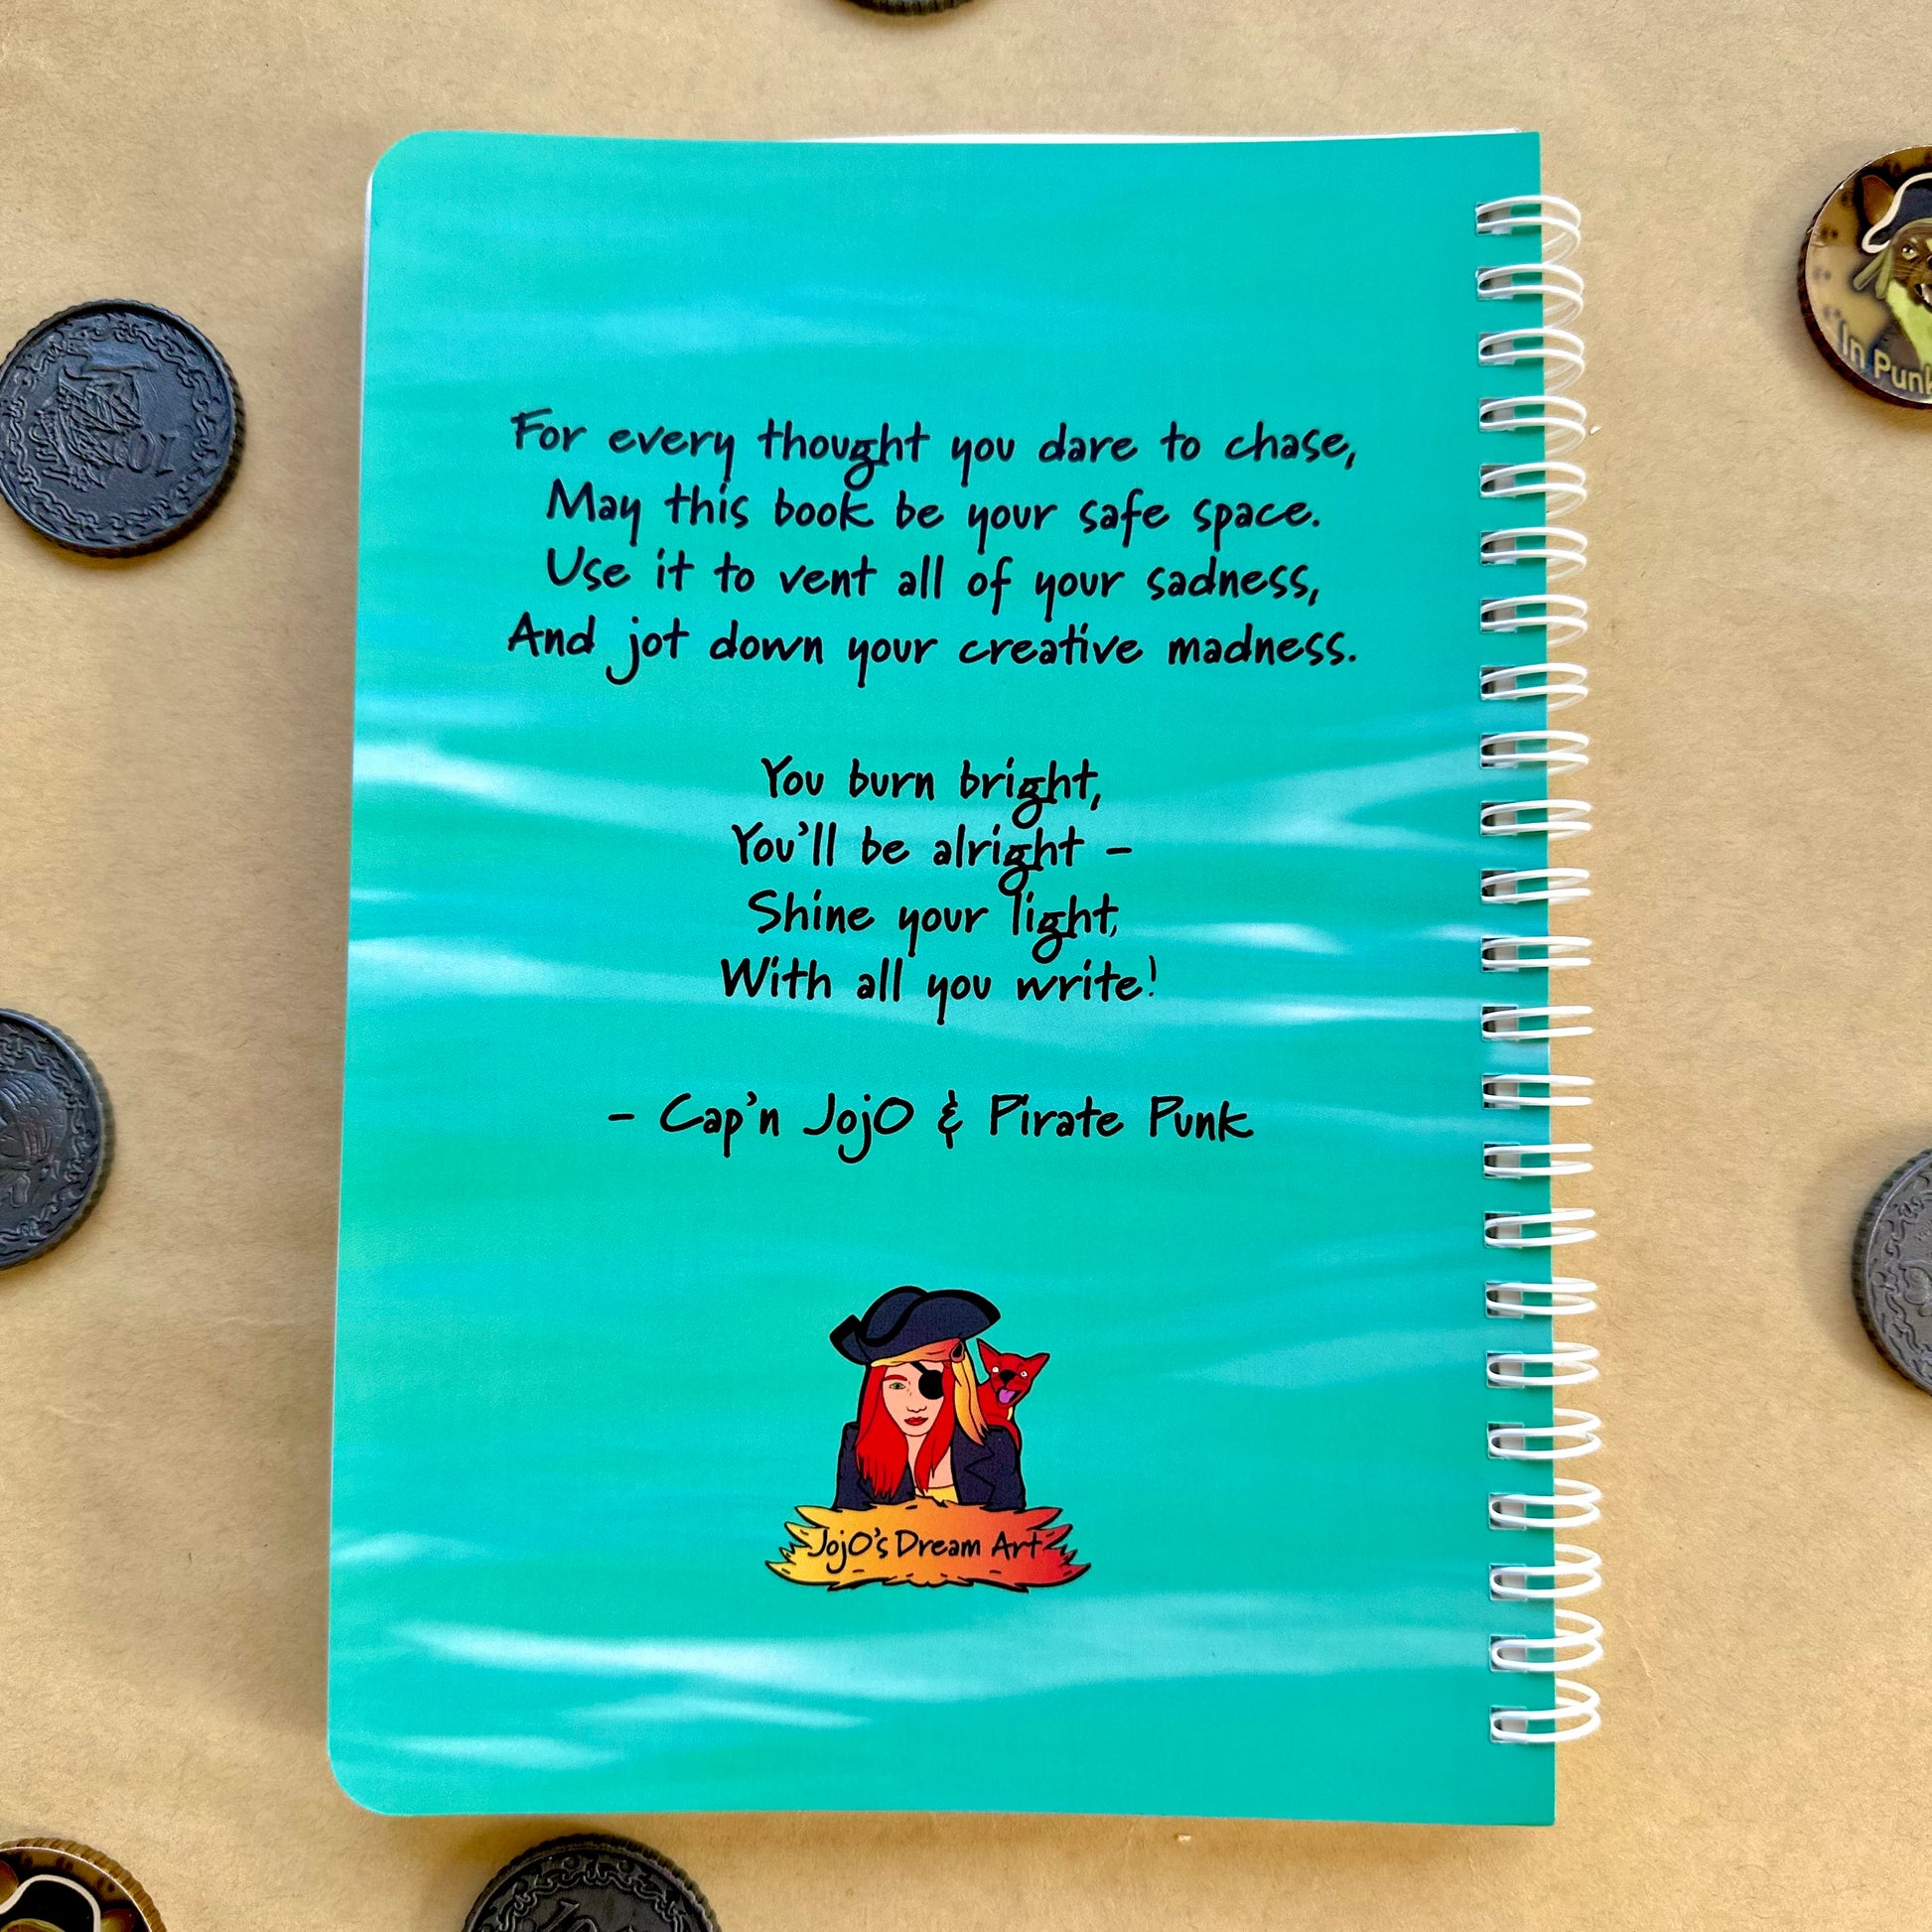 For every thought you dare to chase,
May this book be your safe space.
Use it to vent all of your sadness,
And jot down your creative madness.
You burn bright,
You'll be alright –
Shine your light,
With all you write!
– Cap'n JojO & Pirate Punk
JojO's Dream Art
In Punk
10